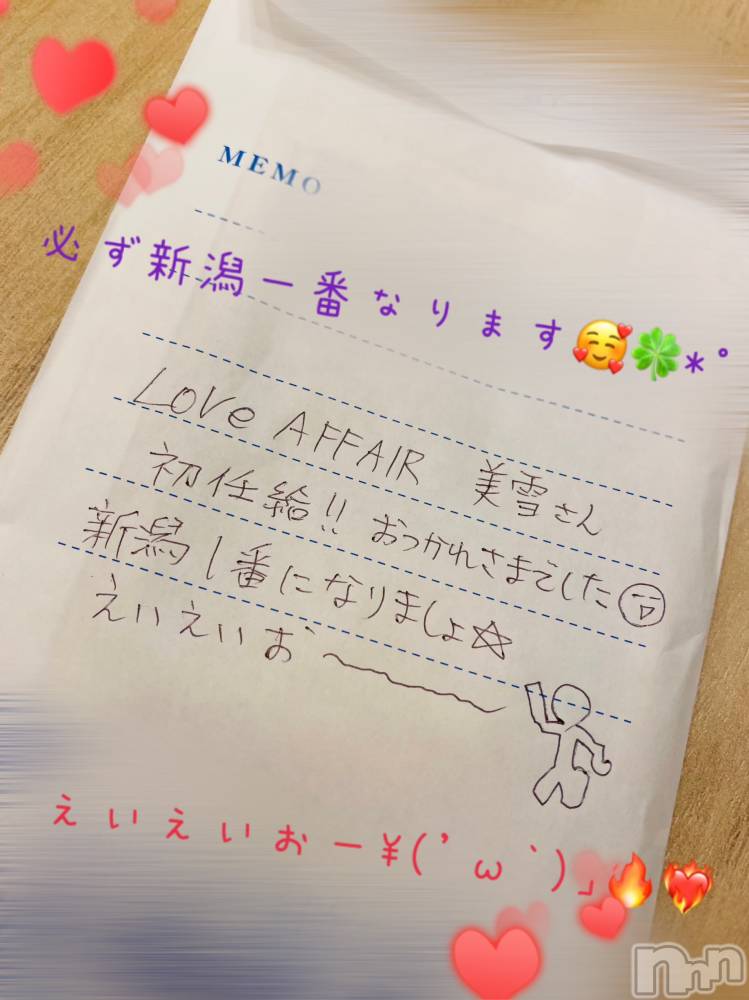 MEMO
必ず新潟一番なります🥰🍀*°
Love AFFAIR 美雪さん
初任給!! おつかれさまでした
新潟1番になりましょ☆
えいえいお〜
えいえいおー¥(’ω`)」🔥❤️‍🔥
nnn